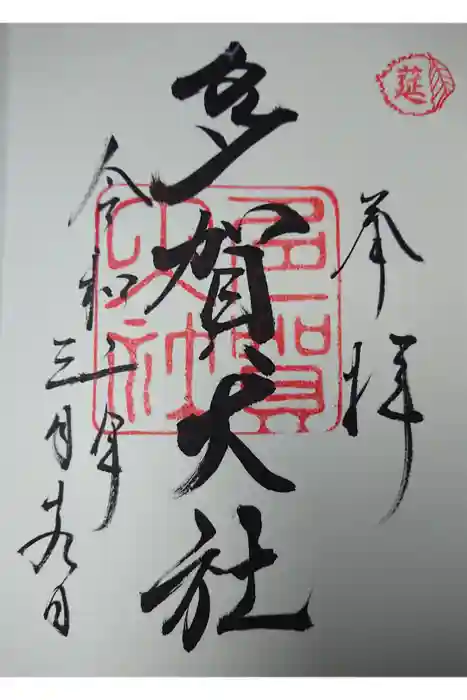 莚
奉拝
多賀大社
多賀大社
令和二年
三月廿九日